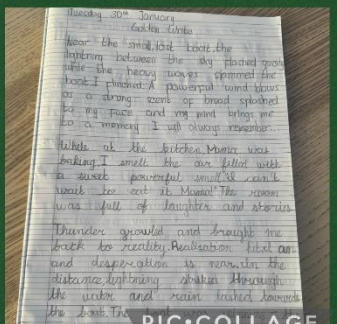 Tuesday 30th January
Golden Write
Near the small, lost boat, the
lightning between the sky flashed
while the heavy waves spammed the
boat. I flinched. A powerful wind blows
as a strong scent of bread splashed
to my face and my mind brings me
to a memory I will always remember.
While at the kitchen, Mama was
baking, I smelt the air filled with
a sweet powerful smell. "I can't
wait to eat it Mama!" The room
was full of laughter and stories
Thunder growled and brought me
back to reality. Realisation
and desperation is near. In the
distance, lightning strikes through
the water and rain lashed towards
the boat. The
PIC•COLLAGE